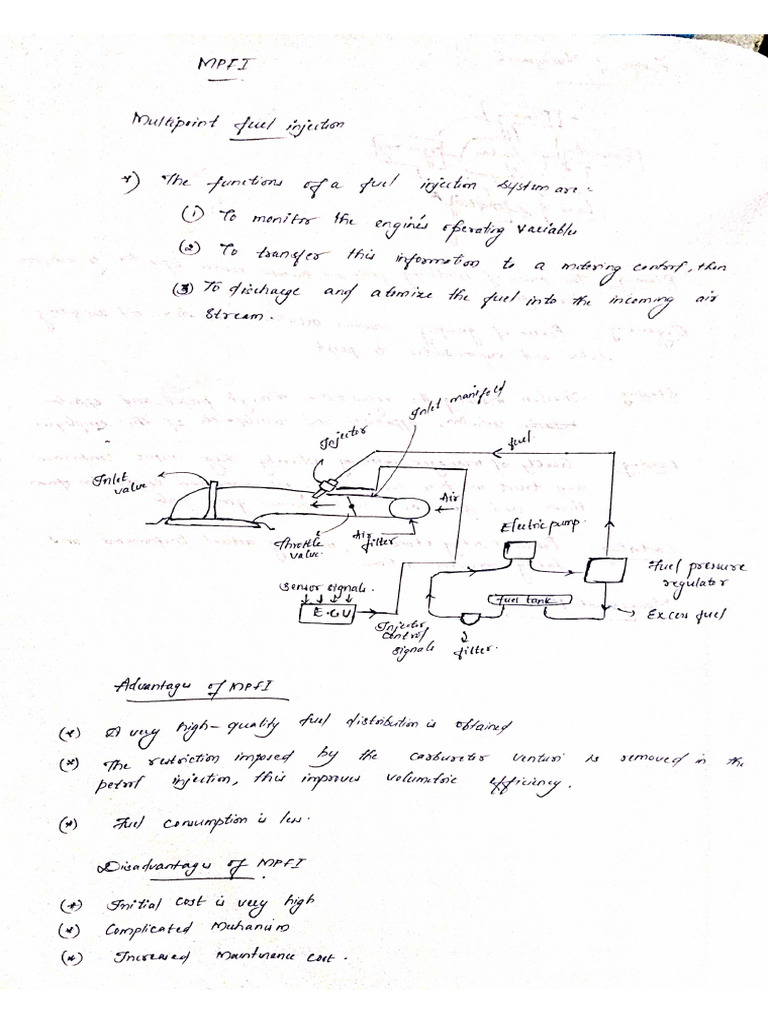 MPFI
Multipoint fuel injection
*) The functions of a fuel injection system are:
(1) To monitor the engine's operating variables
(2) To transfer this information to a metering control, then
(3) To discharge and atomize the fuel into the incoming air
stream.
Inlet manifold
Injector
fuel
Inlet
valve
Air
Electric pump
Throttle
valve
Air
filter
Fuel pressure
regulator
Sensor signals
fuel tank
E.C.U
Excess fuel
Injector
control
signals
filter
Advantages of MPFI
(*) A very high-quality fuel distribution is obtained
(*) The restriction imposed by the carburetor venturi is removed in the
petrol injection, this improves volumetric efficiency.
(*) Fuel consumption is less.
Disadvantages of MPFI
(*) Initial cost is very high
(*) Complicated Mechanism
(*) Increased Maintenance cost.